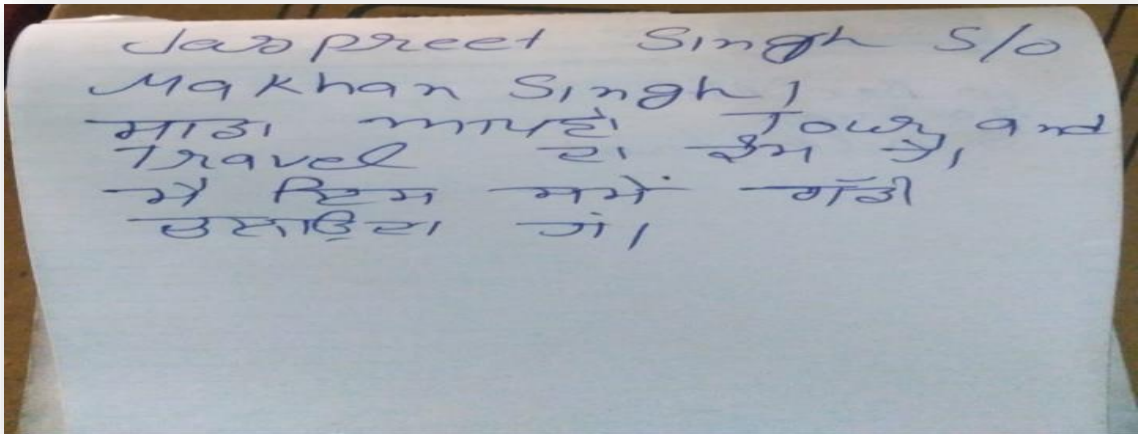 Jaspreet Singh S/o
Makhan Singh,
ਸਾਡਾ ਆਪਣਾ Tour and
Travel ਦਾ ਕੰਮ ਹੈ।
ਮੈਂ ਇਸ ਸਮੇਂ ਗੱਡੀ
ਚਲਾਉਦਾ ਹਾਂ।